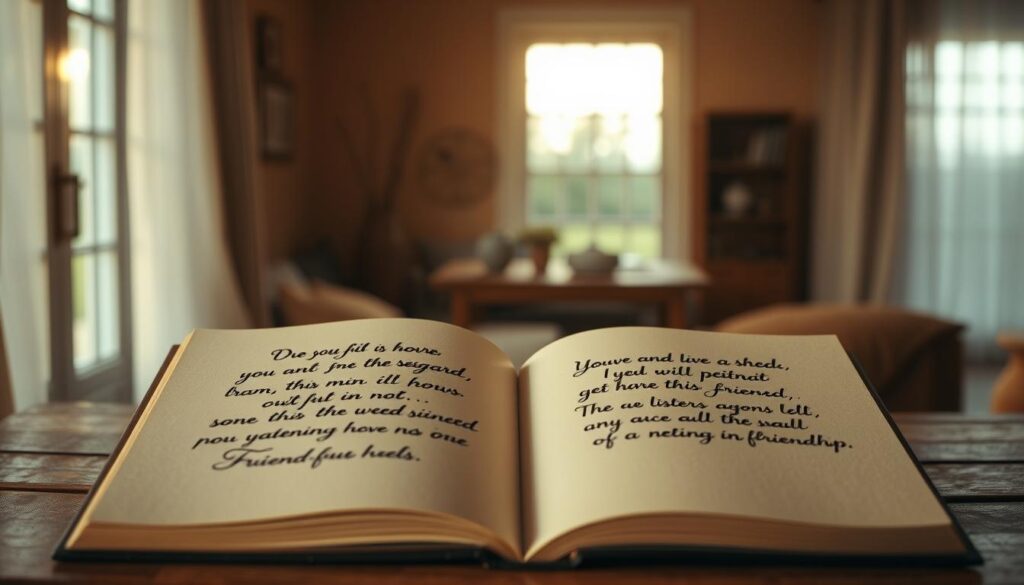 Due you ful is hove,
you ant fne the seygard,
bram, this min ill hows.
out fut in not...
some this the weed siineed
pou yatening hove no one
Friend-fuu heels.
Youve and live a shed,
I yed will peitnat
get have this, friened,.
The ae listers agons lell,
any auce aull the waull
of a neting in ffriendhyp.